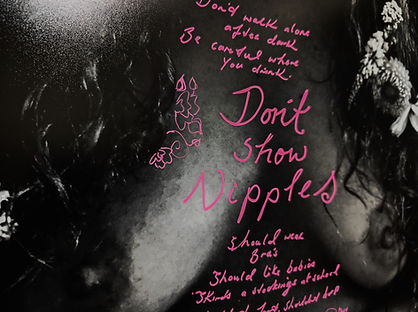 Don't walk alone
after dark
Be careful where
You drink.
Don't
show
Nipples
Should wear
Bra's
Should like babies
Skirts & stockings at school
shouldn't